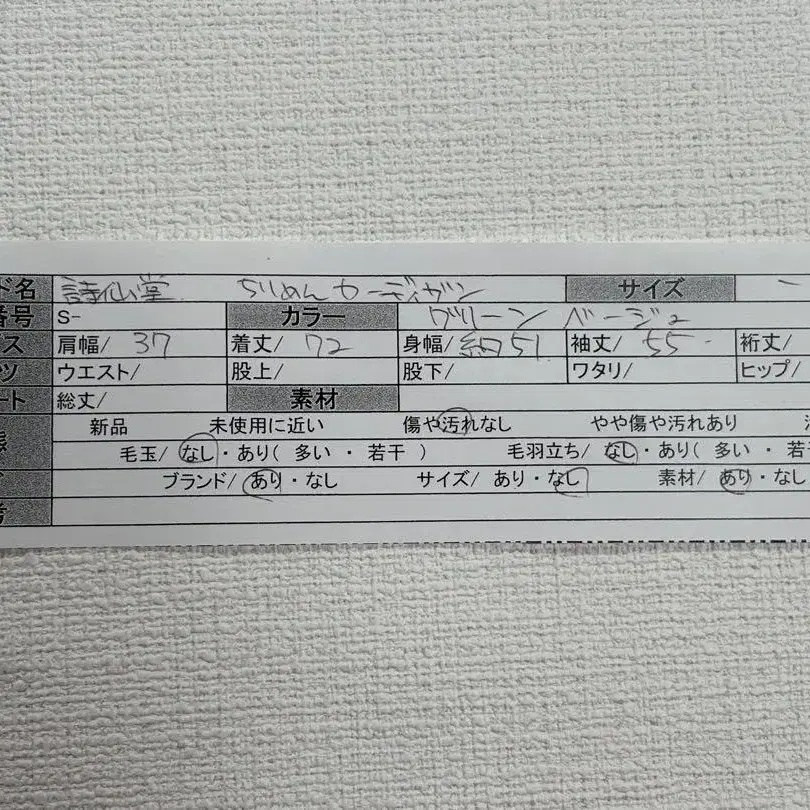 ド名 詩仙堂 ちりめんカーディガン サイズ ー
番号 S- カラー グリーン ベージュ
ス 肩幅/ 37 着丈/ 72 身幅/ 約51 袖丈/ 55 裄丈/
ツ ウエスト/ 股上/ 股下/ ワタリ/ ヒップ/
ート 総丈/ 素材
態 新品 未使用に近い 傷や汚れなし やや傷や汚れあり
毛玉/ なし・あり( 多い ・ 若干 ) 毛羽立ち/ なし・あり( 多い ・ 若干
ド ブランド/ あり・なし サイズ/ あり・なし 素材/ あり・なし
考